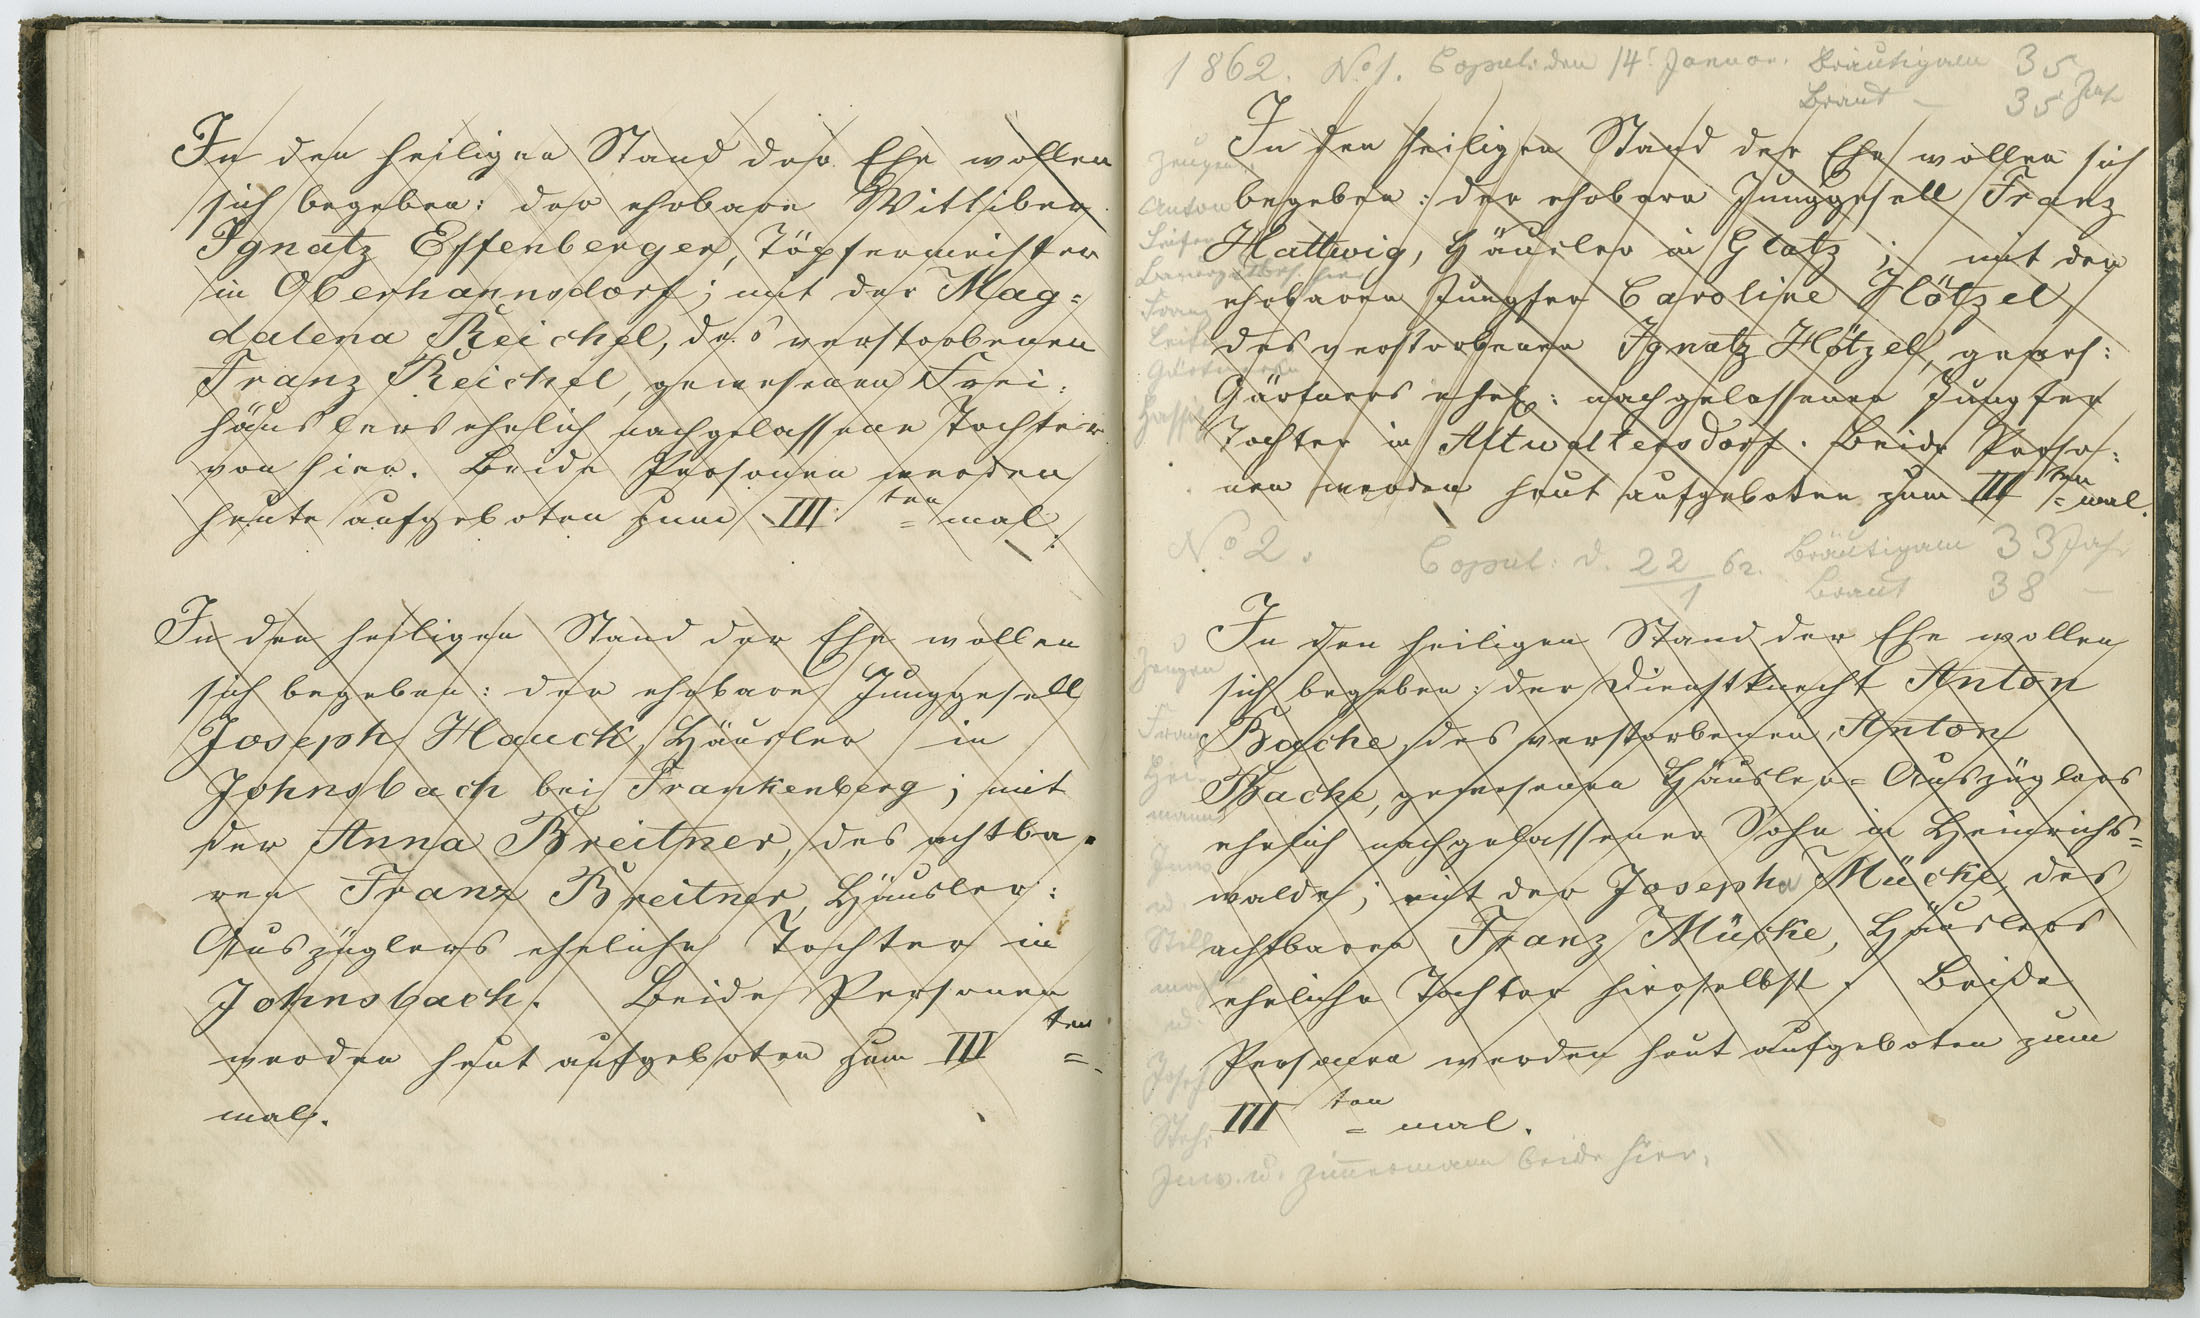 In den heiligen Stand der Ehe wollen
sich begeben: der ehrbare Wittiber
Ignatz Effenberger, Töpfermeister
in Oberhannsdorf; mit der Mag=
dalena Reichel, des verstorbenen
Franz Reichel, gewesenen Frei:
häuslers ehelich nachgelassene Tochter
von hier. Beide Personen werden
heute aufgeboten zum III ten = mal.
In den heiligen Stand der Ehe wollen
sich begeben: der ehrbare Junggesell
Joseph Hauck, Häusler in
Johnsbach bei Frankenberg; mit
der Anna Breitner, des achtba=
ren Franz Breitner, Häusler:
Auszüglers eheliche Tochter in
Johnsbach. Beide Personen
werden heut aufgeboten zum III ten =
mal.
1862. No 1. Copul: den 14t Januar. Bräutigam 35
Braut – 35 Jahr
In den heiligen Stand der Ehe wollen sich
begeben: der ehrbare Junggesell Franz
Hattwig, Häusler in Glatz; mit der
ehrbaren Jungfer Caroline Hötzel,
des verstorbenen Ignatz Hötzel, gewes:
Gärtners ehel: nachgelassener Jungfer
Tochter in Altwaltersdorf. Beide Perso:
nen werden heut aufgeboten zum III ten = mal.
Zeugen
Anton
Franz
No 2. Copul: d. 22/1 62. Bräutigam 33 Jahr
Braut 38 –
In den heiligen Stand der Ehe wollen
sich begeben: der Dienstknecht Anton
Bache, des verstorbenen Anton
Bache, gewesenen Häusler= Auszüglers
ehelich nachgelassener Sohn in Heinrichs=
walde; mit der Josepha Mücke, des
achtbaren Franz Mücke, Häuslers
eheliche Tochter hierselbst. Beide
Personen werden heut aufgeboten zum
III ten = mal.
Zeugen
Franz
mann
Inw.
u
Joseph
Inw. u. Zimmermann beide hier.